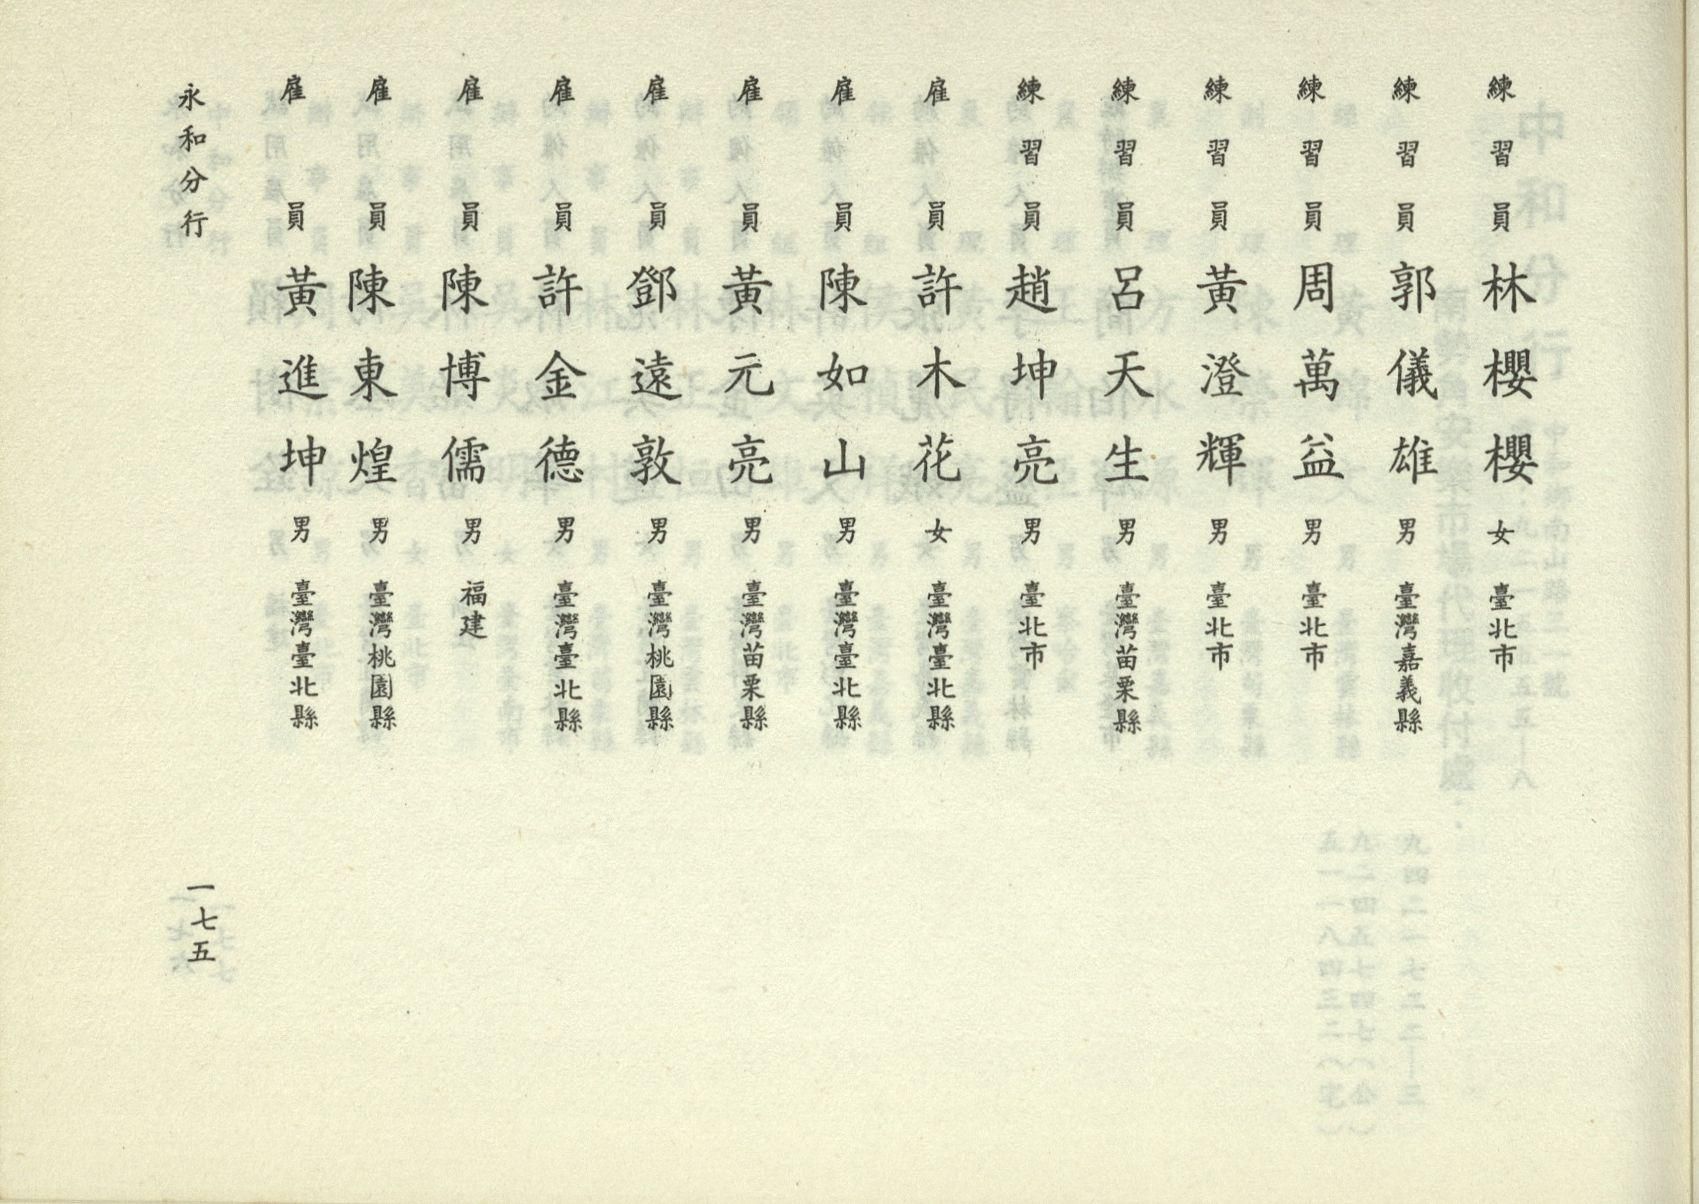 練習員 林櫻櫻 女 臺北市
練習員 郭儀雄 男 臺灣嘉義縣
練習員 周萬益 男 臺北市
練習員 黃澄輝 男 臺北市
練習員 呂天生 男 臺灣苗栗縣
練習員 趙坤亮 男 臺北市
雇員 許木花 女 臺灣臺北縣
雇員 陳如山 男 臺灣臺北縣
雇員 黃元亮 男 臺灣苗栗縣
雇員 鄧遠敦 男 臺灣桃園縣
雇員 許金德 男 臺灣臺北縣
雇員 陳博儒 男 福建
雇員 陳東煌 男 臺灣桃園縣
雇員 黃進坤 男 臺灣臺北縣
永和分行 一七五